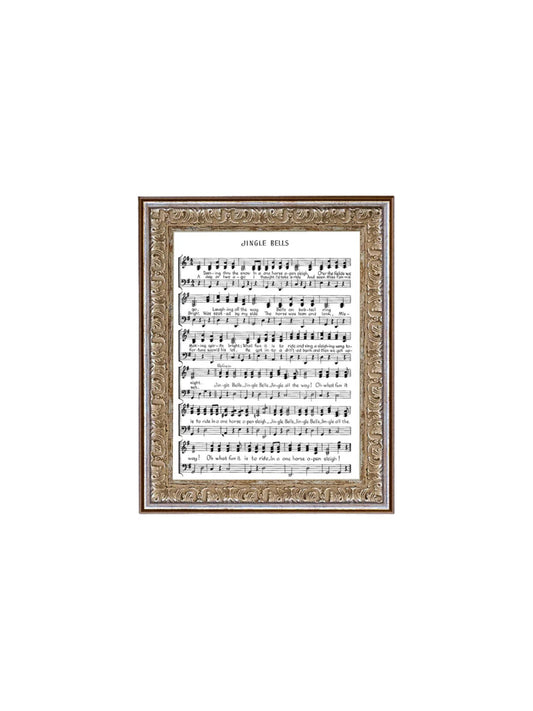 JINGLE BELLS
Dash-ing thru the snow In a one horse o-pen sleigh, O'er the fields we
A day or two a-go I thought I'd take a ride And soon Miss Fan-nie
go, Laugh-ing all the way Bells on bob-tail
Bright Was seat-ed by my side The horse was lean and lank, Mis-
Mak-ing spir-its bright; What fun it is to ride and sing a sleigh-ing song to-
for-tune seem'd his lot, He got in-to a drift-ed bank and then we got
night.
Jin-gle Bells, Jin-gle Bells, Jin-gle all the way! Oh what fun it
is to ride, In a one horse o-pen sleigh. Jin-gle Bells, Jin-gle Bells, Jin-gle all the
way! Oh what fun it is to ride, In a one horse o-pen sleigh!